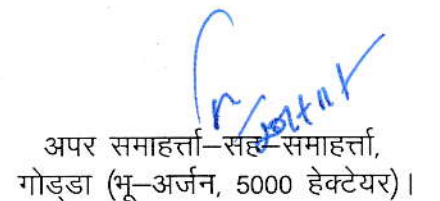 अपर समाहर्त्ता–सह–समाहर्त्ता,
गोड्डा (भू–अर्जन, 5000 हेक्टेयर)।